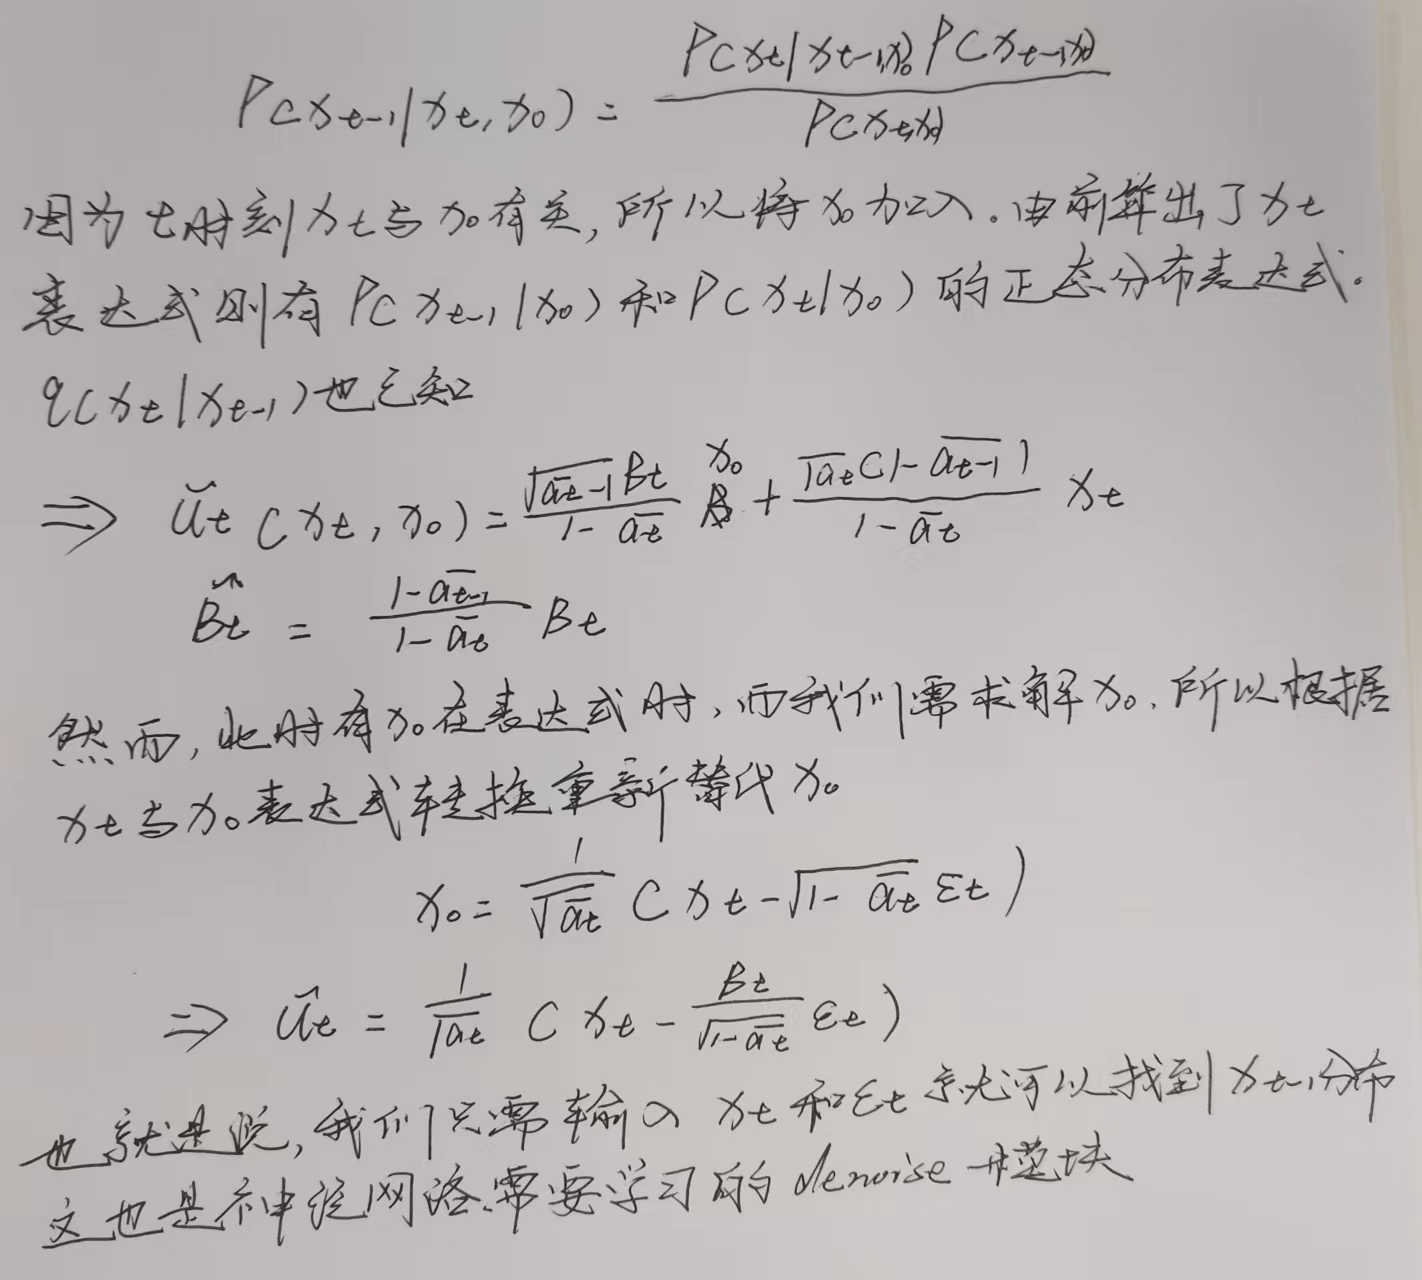 P(xt-1|xt,x0) = P(xt|xt-1,x0)P(xt-1,x0) / P(xt,x0)
因为t时刻xt与x0有关,所以将x0加入.由前算出了xt
表达式则有P(xt-1|x0)和P(xt|x0)的正态分布表达式.
q(xt|xt-1)也已知
⇒ ũt(xt,x0) = √ā̅t-1 Bt / 1-āt x0 + √at(1-āt-1) / 1-āt xt
B̃t = 1-āt-1 / 1-āt Bt
然而,此时有x0在表达式时,而我们需求解x0.所以根据
xt与x0表达式转换重新替代x0
x0 = 1/√āt (xt-√1-āt εt)
⇒ ũt = 1/√at (xt - Bt/√1-āt εt)
也就是说,我们只需输入xt和εt就可以找到xt-1分布
这也是神经网络需要学习的denoise模块